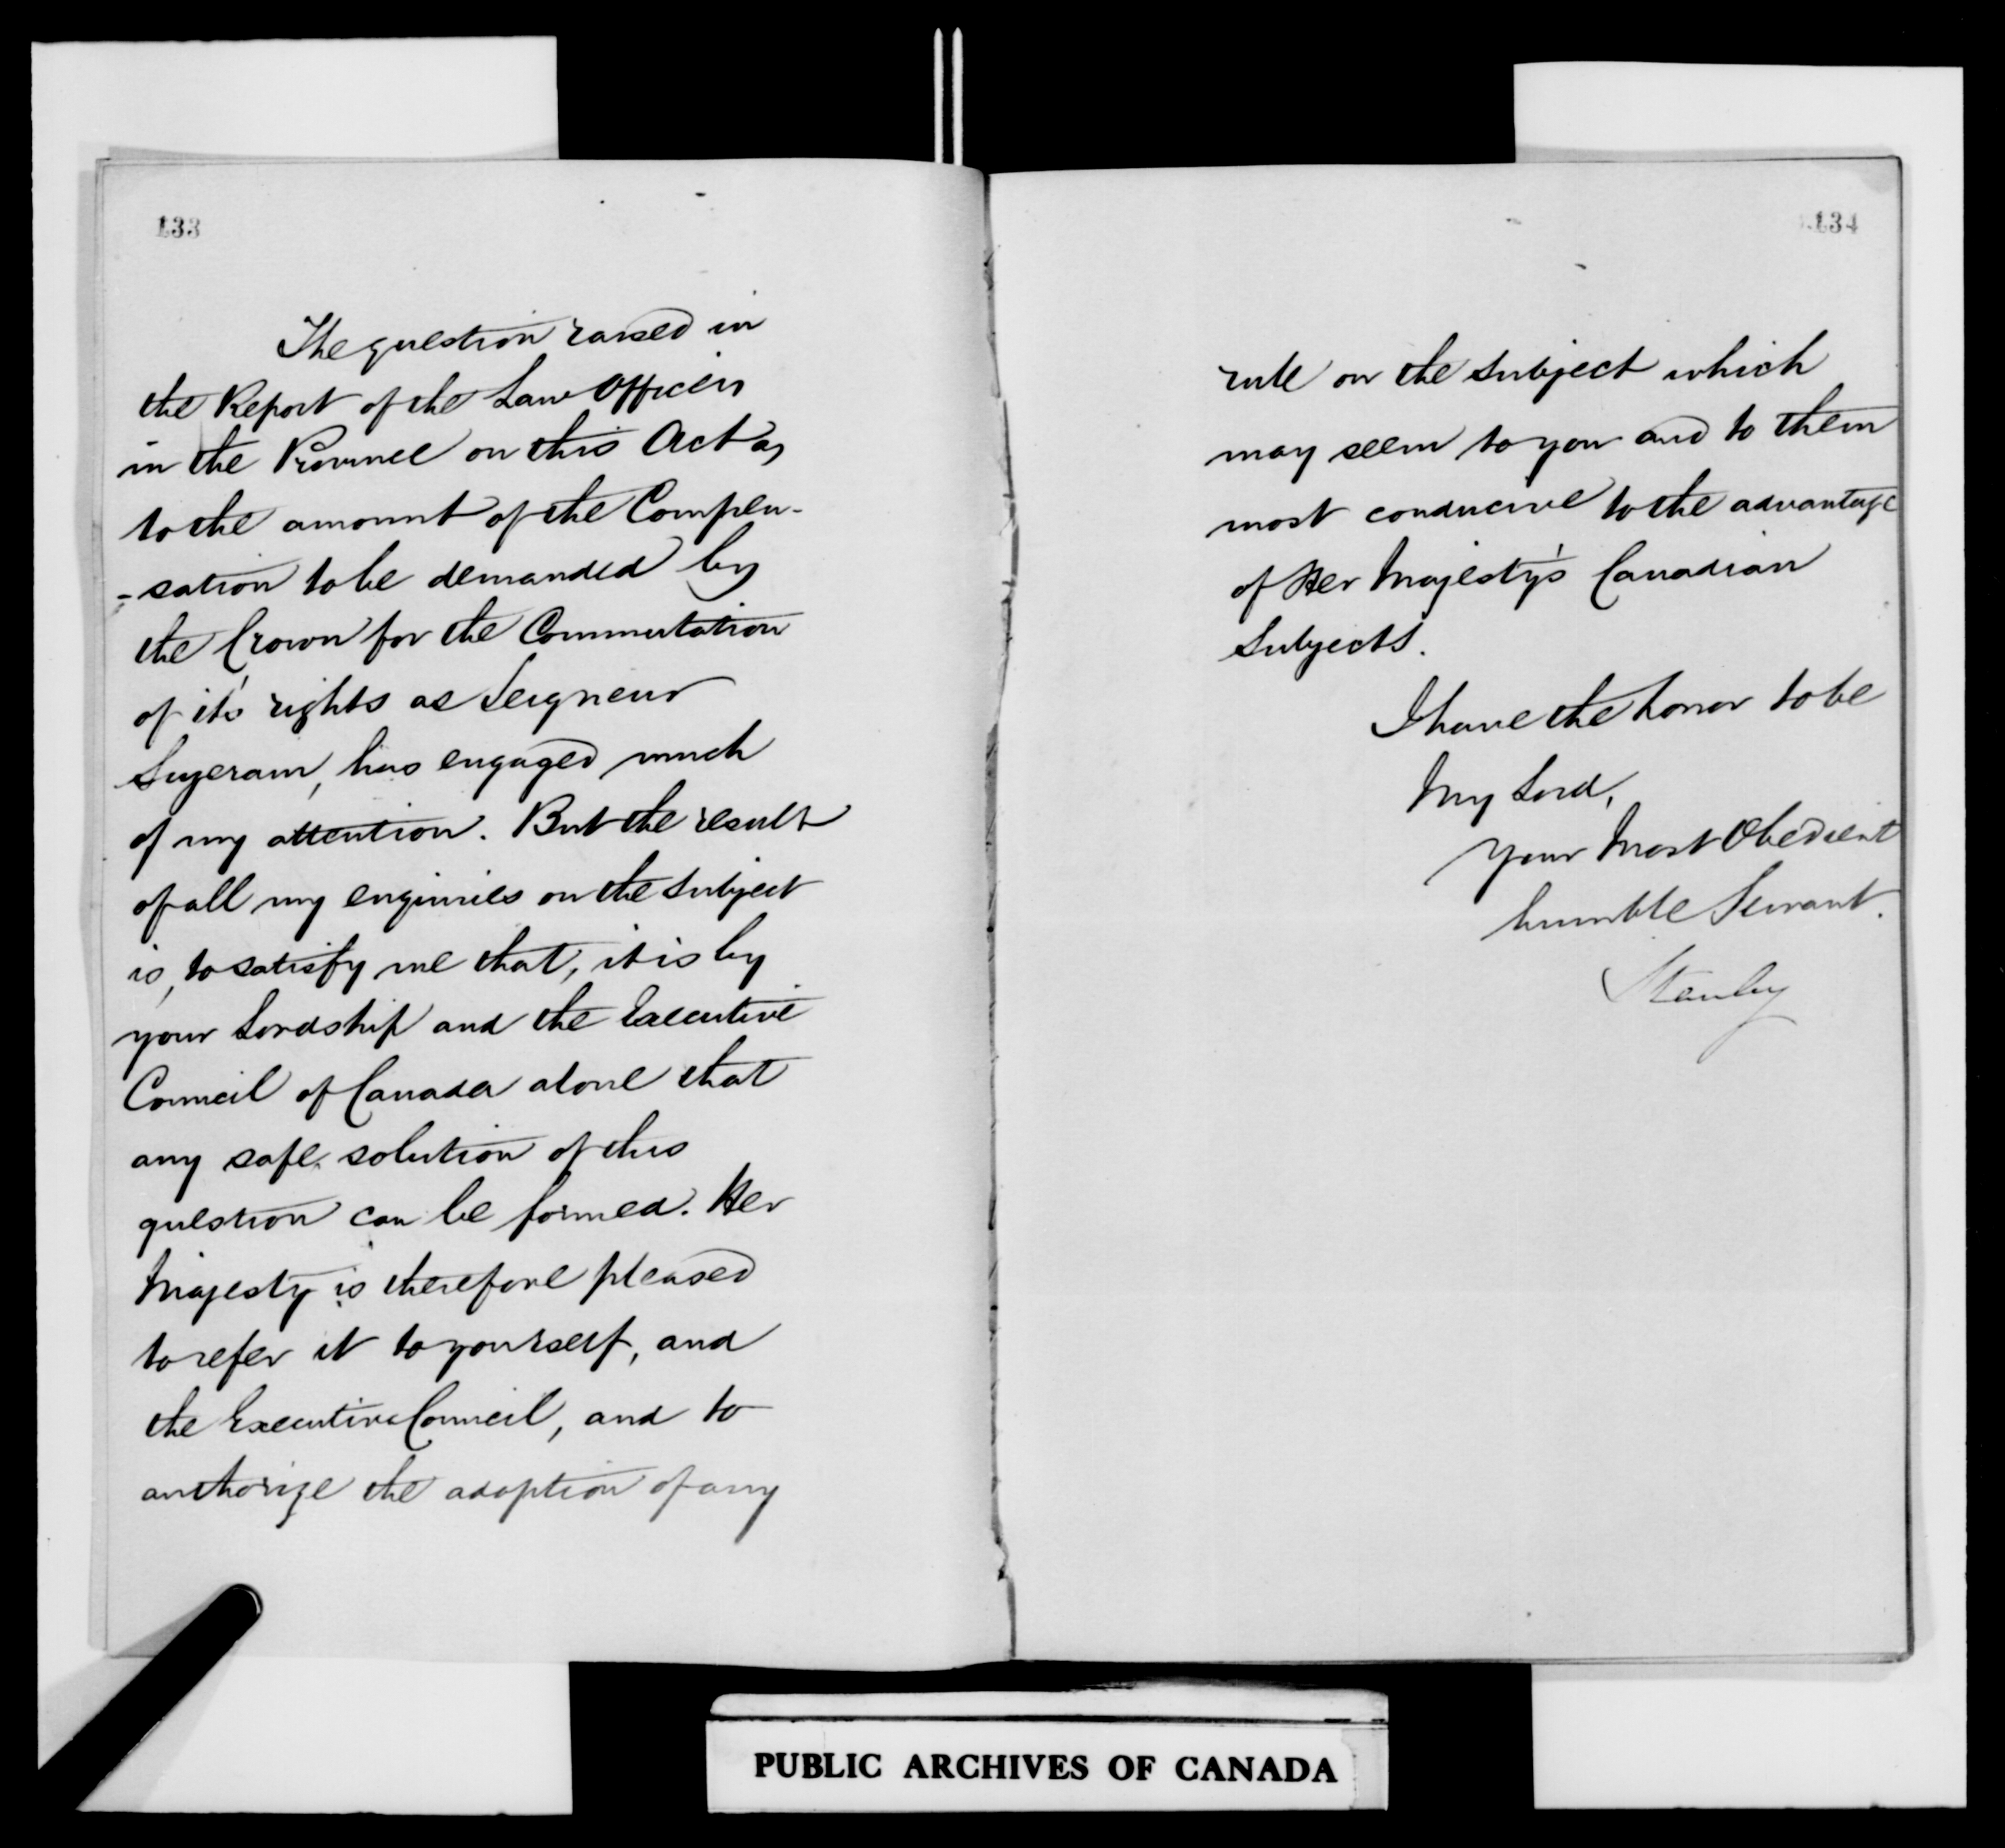 133
The question raised in
the Report of the Law Officers
in the Province on this Act as
to the amount of the Compen-
-sation to be demanded by
the Crown for the Commutation
of it's rights as Seigneur
Suzerain, has engaged much
of my attention. But the result
of all my enquiries on the subject
is, to satisfy me that, it is by
your Lordship and the Executive
Council of Canada alone that
any safe solution of this
question can be formed. Her
Majesty is therefore pleased
to refer it to yourself, and
the Executive Council, and to
authorize the adoption of any
134
rule on the subject which
may seem to you and to them
most conducive to the advantage
of Her Majesty's Canadian
Subjects.
I have the honor to be
My Lord,
Your Most Obedient
humble Servant.
Stanley
PUBLIC ARCHIVES OF CANADA